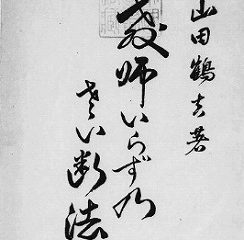 山田鶴吉著
教師いらず乃
さい断法